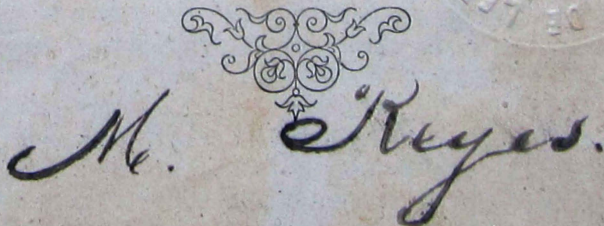 M. Reyes.